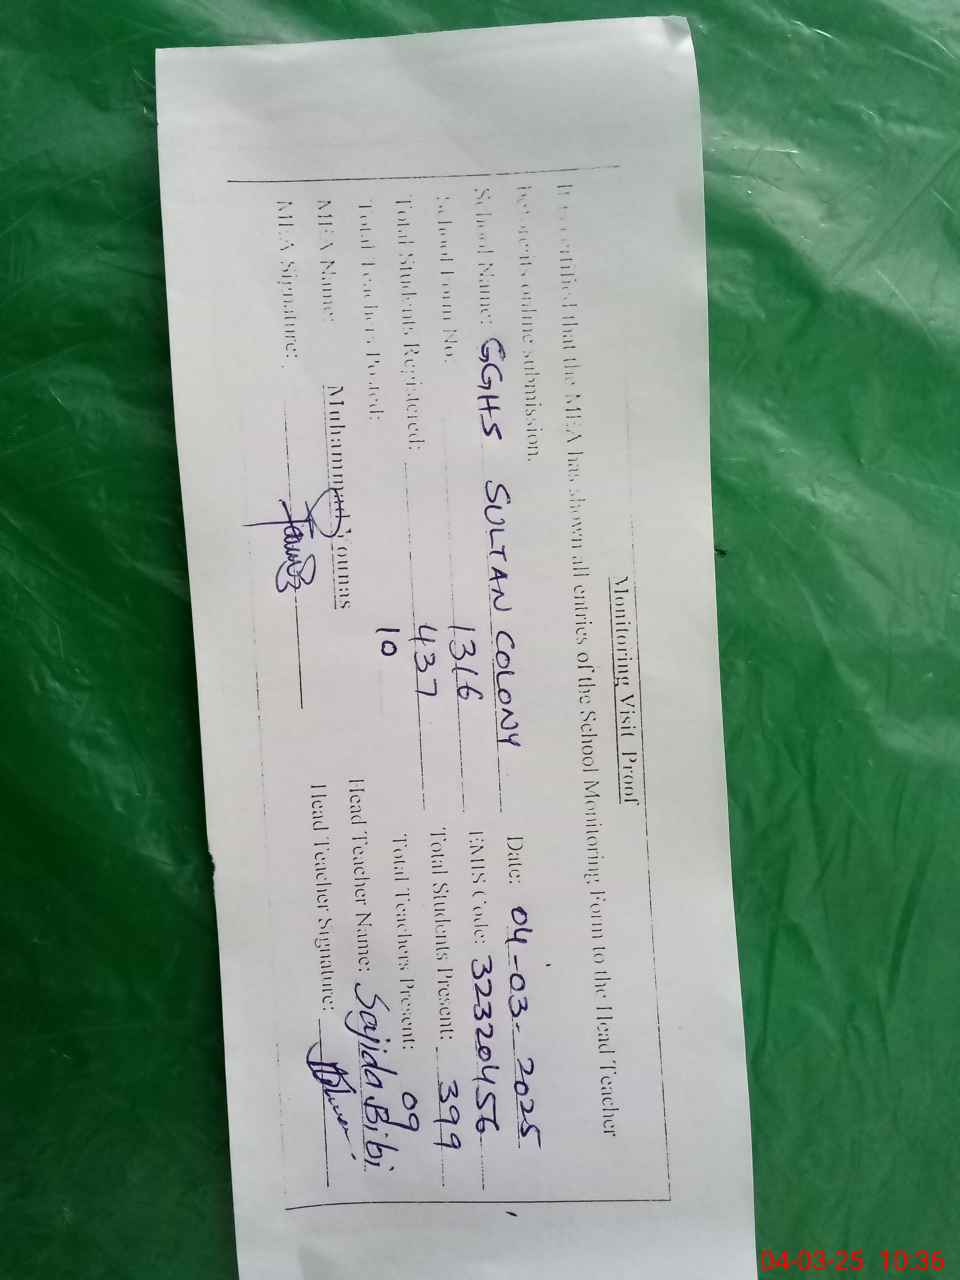 Monitoring Visit Proof
It is certified that the MEA has shown all entries of the School Monitoring Form to the Head Teacher
before its online submission.
School Name: GGHS SULTAN COLONY Date: 04-03-2025
School Form No: 1316 EMIS Code: 32320456
Total Students Registered: 437 Total Students Present: 399
Total Teachers Posted: 10 Total Teachers Present: 09
MEA Name: Muhammad Younas Head Teacher Name: Sajida Bibi
MEA Signature: Head Teacher Signature:
04-03-25 10:36